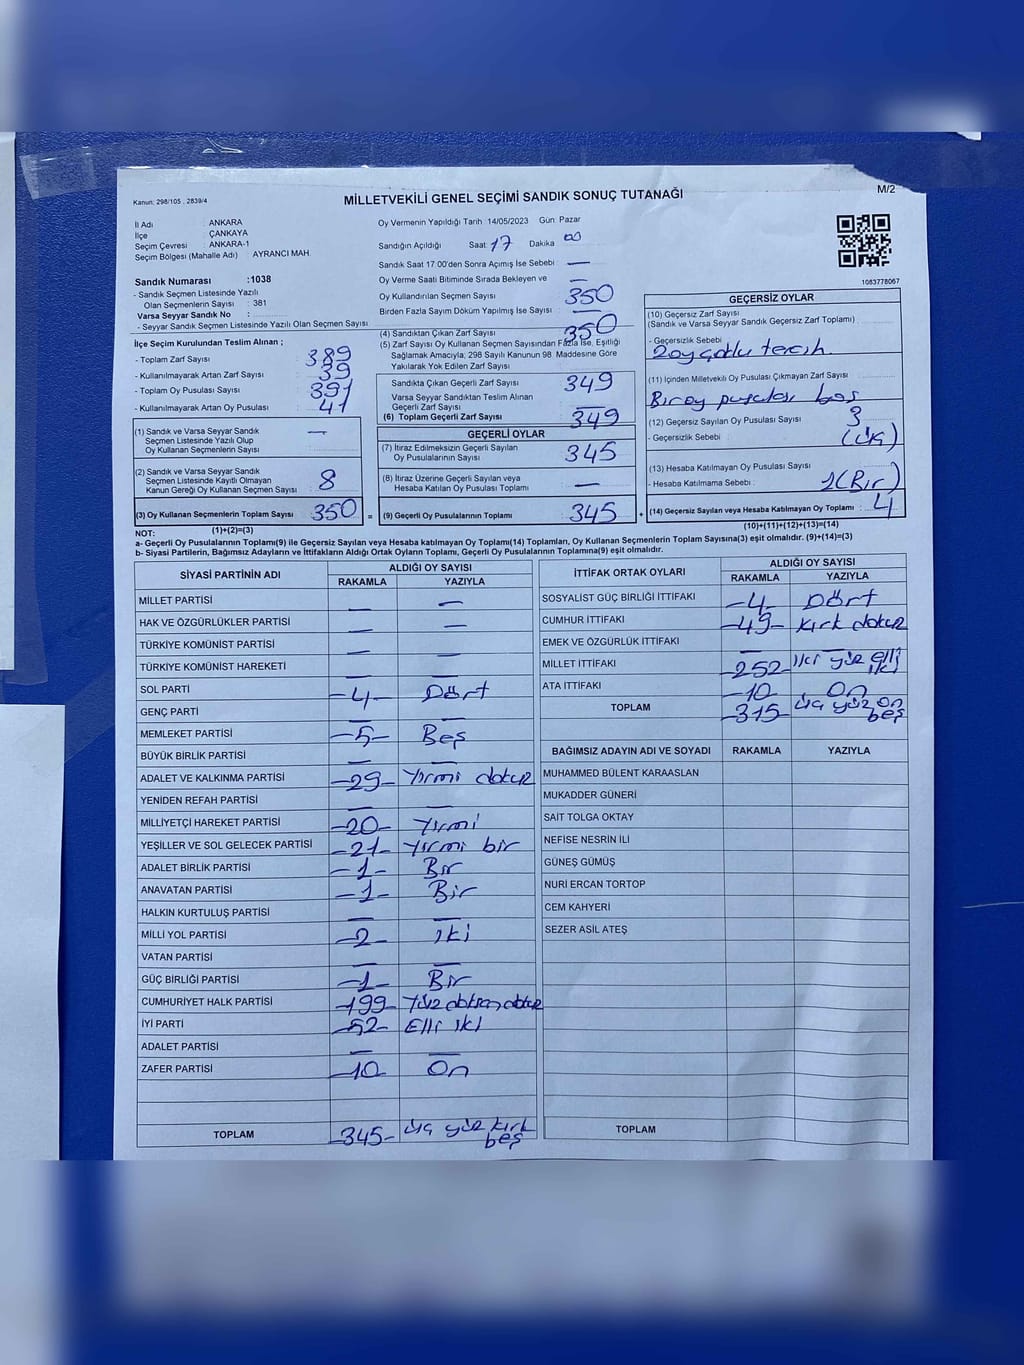 M/2
Kanun: 298/105 , 2839/4
MİLLETVEKİLİ GENEL SEÇİMİ SANDIK SONUÇ TUTANAĞI
İl Adı : ANKARA
İlçe : ÇANKAYA
Seçim Çevresi : ANKARA-1
Seçim Bölgesi (Mahalle Adı) : AYRANCI MAH.
Sandık Numarası :1038
- Sandık Seçmen Listesinde Yazılı
Olan Seçmenlerin Sayısı : 381
Varsa Seyyar Sandık No :
- Seyyar Sandık Seçmen Listesinde Yazılı Olan Seçmen Sayısı
İlçe Seçim Kurulundan Teslim Alınan ;
- Toplam Zarf Sayısı : 389
- Kullanılmayarak Artan Zarf Sayısı : 39
- Toplam Oy Pusulası Sayısı : 391
- Kullanılmayarak Artan Oy Pusulası : 41
(1) Sandık ve Varsa Seyyar Sandık
Seçmen Listesinde Yazılı Olup
Oy Kullanan Seçmenlerin Sayısı : —
(2) Sandık ve Varsa Seyyar Sandık
Seçmen Listesinde Kayıtlı Olmayan
Kanun Gereği Oy Kullanan Seçmen Sayısı : 8
(3) Oy Kullanan Seçmenlerin Toplam Sayısı : 350 =
(1)+(2)=(3)
Oy Vermenin Yapıldığı Tarih :14/05/2023 Gün: Pazar
Sandığın Açıldığı Saat: 17 Dakika : 00
Sandık Saat 17.00'den Sonra Açımış İse Sebebi : —
Oy Verme Saati Bitiminde Sırada Bekleyen ve
Oy Kullandırılan Seçmen Sayısı : — 350
Birden Fazla Sayım Döküm Yapılmış İse Sayısı : —
(4) Sandıktan Çıkan Zarf Sayısı : 350
(5) Zarf Sayısı Oy Kullanan Seçmen Sayısından Fazla İse, Eşitliği
Sağlamak Amacıyla; 298 Sayılı Kanunun 98. Maddesine Göre
Yakılarak Yok Edilen Zarf Sayısı
Sandıkta Çıkan Geçerli Zarf Sayısı : 349
Varsa Seyyar Sandıktan Teslim Alınan
Geçerli Zarf Sayısı : —
(6) Toplam Geçerli Zarf Sayısı : 349
GEÇERLİ OYLAR
(7) İtiraz Edilmeksizin Geçerli Sayılan
Oy Pusulalarının Sayısı : 345
(8) İtiraz Üzerine Geçerli Sayılan veya
Hesaba Katılan Oy Pusulası Toplamı : —
(9) Geçerli Oy Pusulalarının Toplamı : 345 +
1083778067
GEÇERSİZ OYLAR
(10) Geçersiz Zarf Sayısı
(Sandık ve Varsa Seyyar Sandık Geçersiz Zarf Toplamı) :
- Geçersizlik Sebebi :
2 oy çoklu tercih.
(11) İçinden Milletvekili Oy Pusulası Çıkmayan Zarf Sayısı :
Bir oy pusulası boş
(12) Geçersiz Sayılan Oy Pusulası Sayısı : 3
- Geçersizlik Sebebi : (Üç)
(13) Hesaba Katılmayan Oy Pusulası Sayısı :
- Hesaba Katılmama Sebebi : 1(Bir)
(14) Geçersiz Sayılan veya Hesaba Katılmayan Oy Toplamı : 4
(10)+(11)+(12)+(13)=(14)
NOT:
a- Geçerli Oy Pusulalarının Toplamı(9) ile Geçersiz Sayılan veya Hesaba Katılmayan Oy Toplamı(14) Toplamları, Oy Kullanan Seçmenlerin Toplam Sayısına(3) eşit olmalıdır. (9)+(14)=(3)
b- Siyasi Partilerin, Bağımsız Adayların ve İttifakların Aldığı Ortak Oyların Toplamı, Geçerli Oy Pusulalarının Toplamına(9) eşit olmalıdır.
SİYASİ PARTİNİN ADI ALDIĞI OY SAYISI
RAKAMLA YAZIYLA
MİLLET PARTİSİ — —
HAK VE ÖZGÜRLÜKLER PARTİSİ — —
TÜRKİYE KOMÜNİST PARTİSİ — —
TÜRKİYE KOMÜNİST HAREKETİ — —
SOL PARTİ -4- Dört
GENÇ PARTİ — —
MEMLEKET PARTİSİ -5- Beş
BÜYÜK BİRLİK PARTİSİ — —
ADALET VE KALKINMA PARTİSİ -29- Yirmi dokuz
YENİDEN REFAH PARTİSİ — —
MİLLİYETÇİ HAREKET PARTİSİ -20- Yirmi
YEŞİLLER VE SOL GELECEK PARTİSİ -21- Yirmi bir
ADALET BİRLİK PARTİSİ -1- Bir
ANAVATAN PARTİSİ -1- Bir
HALKIN KURTULUŞ PARTİSİ — —
MİLLİ YOL PARTİSİ -2- iki
VATAN PARTİSİ — —
GÜÇ BİRLİĞİ PARTİSİ -1- Bir
CUMHURİYET HALK PARTİSİ -199- Yüz doksan dokuz
İYİ PARTİ -52- Elli iki
ADALET PARTİSİ — —
ZAFER PARTİSİ -10- On
TOPLAM -345- üç yüz kırk
beş
İTTİFAK ORTAK OYLARI ALDIĞI OY SAYISI
RAKAMLA YAZIYLA
SOSYALİST GÜÇ BİRLİĞİ İTTİFAKI -4- Dört
CUMHUR İTTİFAKI -49- Kırk dokuz
EMEK VE ÖZGÜRLÜK İTTİFAKI — —
MİLLET İTTİFAKI -252- iki yüz elli
iki
ATA İTTİFAKI -10- On
TOPLAM -315- üç yüz on
beş
BAĞIMSIZ ADAYIN ADI VE SOYADI RAKAMLA YAZIYLA
MUHAMMED BÜLENT KARAASLAN
MUKADDER GÜNERİ
SAİT TOLGA OKTAY
NEFİSE NESRİN İLİ
GÜNEŞ GÜMÜŞ
NURİ ERCAN TORTOP
CEM KAHYERİ
SEZER ASİL ATEŞ
TOPLAM